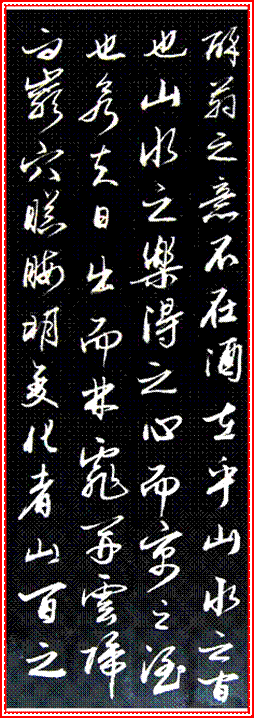 醉翁之意不在酒在乎山水之間
也山水之樂得之心而寓之酒
也若夫日出而林霏開雲歸
而巖穴暝晦明變化者山間之